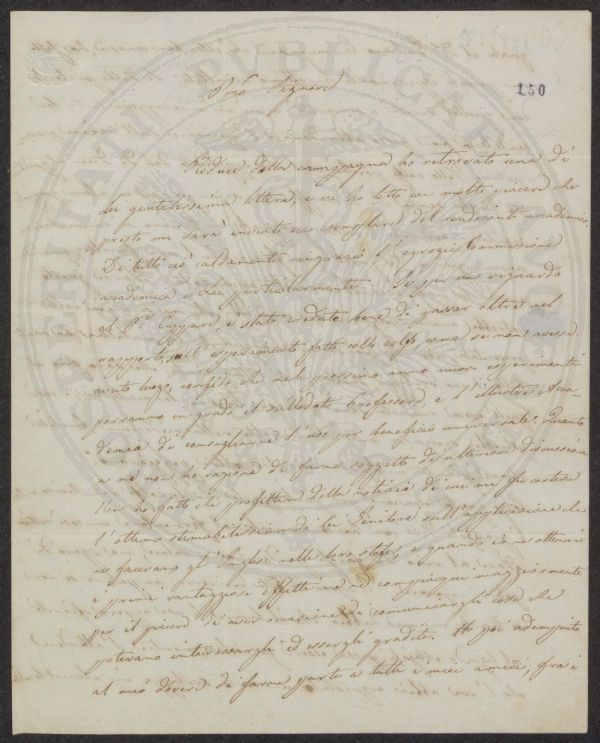 160
Pmo Signore
Reduce dalla campagna ho ritrovato una di
Lei gentilissima lettera, e vi ho letto con molto piacere che
presto mi sarà inviato un esemplare del rendiconto accademico.
Di tutto ciò caldamente ringrazio l'egregia Commissione
accademica e Lei particolarmente. Se per un riguardo
al Pre è stato creduto bene di passar oltre nel
rapporto sull'esperimento fatto collo zolfo come se non avesse
avuto luogo, confido che nel prossimo anno nuovi esperimenti
porranno in grado il sullodato Professore e l'illustre Acca-
demia di consigliarne l'uso per beneficio universale. Quanto
a me non ho ragione di farne soggetto di ulteriori discussioni
Non ho fatto che profittare della notizia di cui mi fu cortese
l'ottimo stimabilissimo di Lei Genitore sull'applicazione che
ne facevano gl'Inglesi nelle loro stufe, e quando io ne ottenni
i primi vantaggiosi effetti me ne compiacqui maggiormente
per il piacere di aver occasione di comunicargli cosa che
potevano interessargli ed essergli graditi. Ho poi adempiuto
al mio dovere di farne parte a tutti i miei amici, fra i